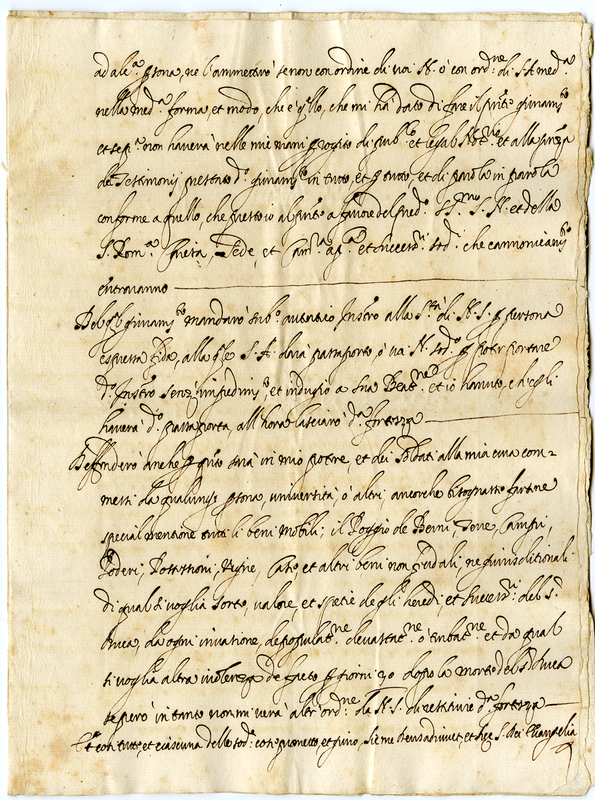 ad alc.ª p̱sona, ne l'ammetterò se non con ordine di v̱ra N. ò con ord.ne di S. A. med.ª
nella med.ª forma, et modo, che è q̱llo, che mi hà dato di fare il p̱nte giuram.to
et se p.ª non haverà nelle mie mani rogito di pub.co et legal Not.rio et alla p̱nza
de Testimonij prestato d.º giuram.to in tutto, et p̱ tutto, et di parola in parola
conforme a quello, che presto io al p̱nte a favore del pred.º S.mo S. N. et della
S. Rom.ª Chiesa, Sede, et Cam.ª ap.ª et success.ri sod.i che canonicam.te
entraranno
Del q̱l giuram.to mandarò sub.º autentico Instro alla S.tà di N. S. p̱ persona
espressa fida, alla q̱le S. A. darà passaporto, ò v̱ra N. sod.º p̱ poter portare
d.º Instro senza impedim.to et indugio a Sua Beat.ne et io havuto, ch'egli
haverà d.º passaporto, all'hora lasciarò d.ª fortezza
Deffenderò anche p̱ q̱nto sarà in mio potere, et dei Soldati alla mia cura com-
messi da qualunq̱ p̱sona, università, ò altri ancorche bisognasse farne
special mentione tutti li beni mobili; il Poggio de Berni, Terre, Campi,
Poderi, Possessioni, Vigne, Case, et altri beni non feudali, ne giurisditionali
di qual si voglia sorte, valore, et spetie degli heredi, et success.ri del S.
Duca, da ogni invasione, depopulat.ne devastat.ne ò turbat.ne et da qual
si voglia altra violenza de facto p̱ giorni 20 dopo la morte del S. Duca
se però in tanto non mi verrà altr'ord.ne da N. S. di restituire d.ª fortezza
Et così tutte, et ciascuna delle sod.e cose prometto, et giuro, sic me Deus adiuvet, et hæc S. Dei Evangelia